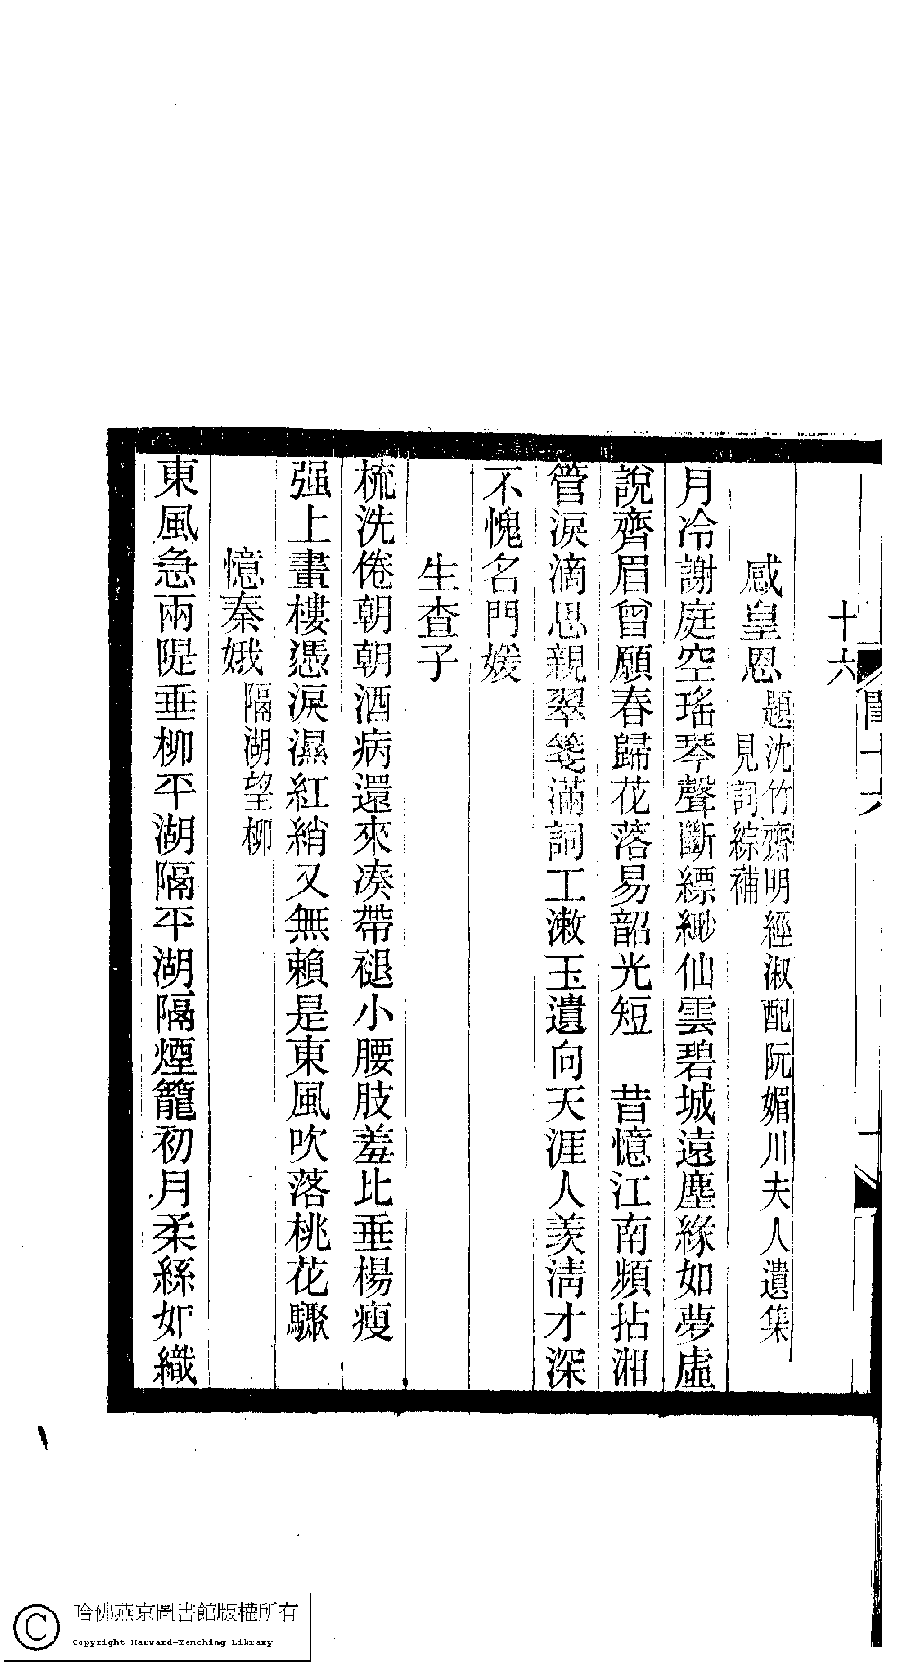 十六
感皇恩 題沈竹齋明經淑配阮媚川夫人遺集
見詞綜補
月冷謝庭空瑤琴聲斷縹緲仙雲碧城遠塵緣如夢虛
說齊眉曾願春歸花落易韶光短　昔憶江南頻拈湘
管淚滴思親翠箋滿詞工漱玉遺向天涯人羨清才深
不愧名門媛
生查子
梳洗倦朝朝酒病還來凑帶褪小腰肢羞比垂楊瘦
强上畫樓憑淚濕紅綃又無賴是東風吹落桃花驟
憶秦娥 隔湖望柳
東風急兩隄垂柳平湖隔平湖隔煙籠初月柔絲如織
哈佛燕京圖書館版權所有
Copyright Harvard-Yenching Library